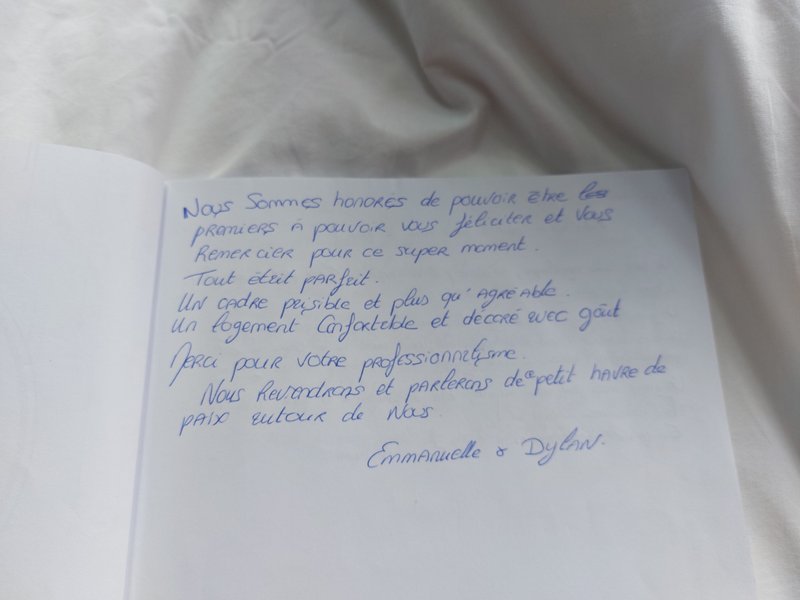 Nous sommes honores de pouvoir être les
premiers à pouvoir vous féliciter et vous
remercier pour ce super moment.
Tout était parfait.
Un cadre paisible et plus qu'agréable.
Un logement confortable et décoré avec goût
Merci pour votre professionnalisme.
Nous reviendrons et parlerons de ce petit havre de
paix autour de nous.
Emmanuelle & Dylan.